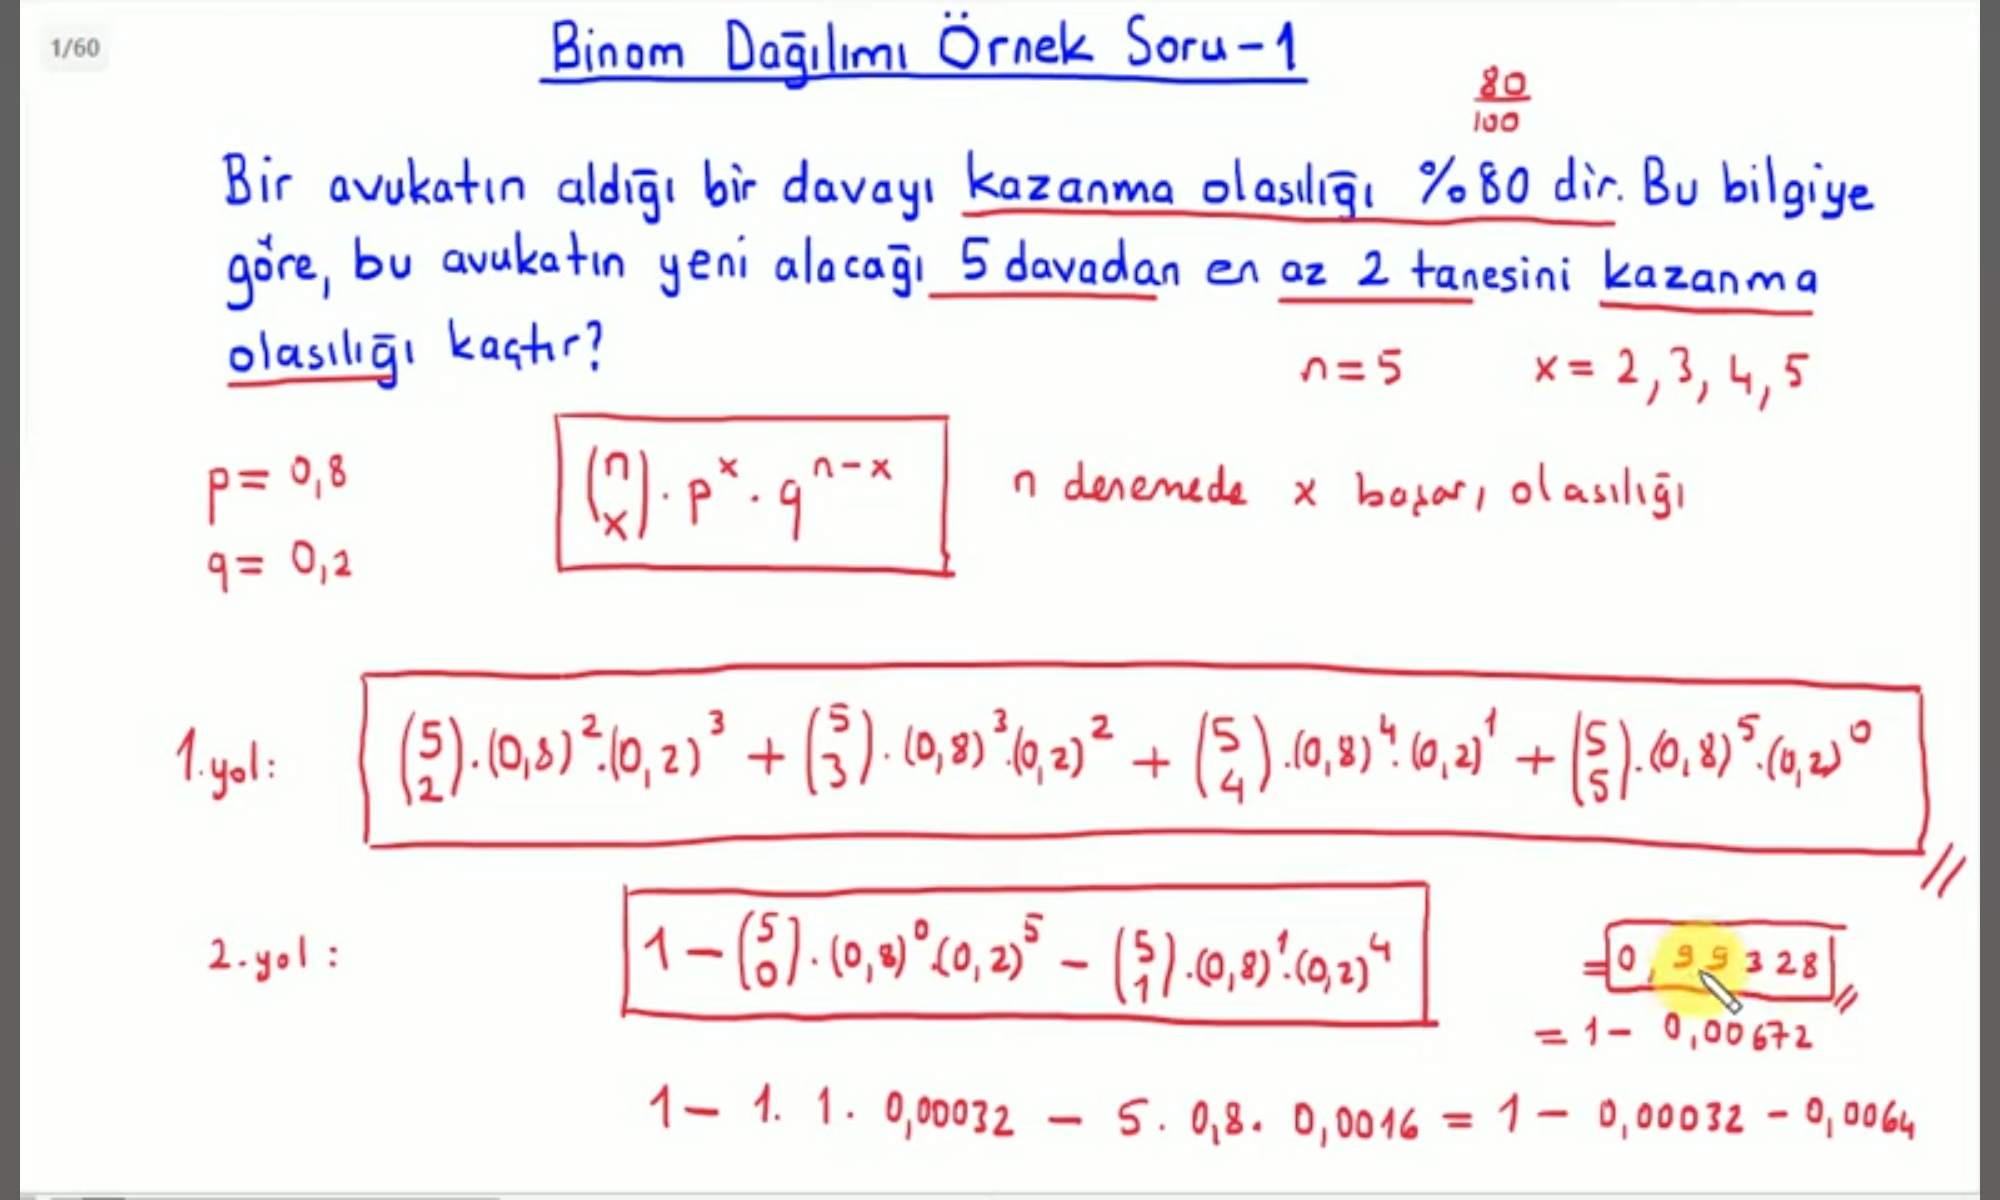 1/60
Binom Dağılımı Örnek Soru-1
80/100
Bir avukatın aldığı bir davayı kazanma olasılığı %80 dir. Bu bilgiye
göre, bu avukatın yeni alacağı 5 davadan en az 2 tanesini kazanma
olasılığı kaçtır?
n=5 x= 2, 3, 4, 5
p= 0,8
q= 0,2
(n x) . p^x . q^(n-x) n denemede x başarı olasılığı
1.yol: (5 2).(0,8)^2.(0,2)^3 + (5 3).(0,8)^3.(0,2)^2 + (5 4).(0,8)^4.(0,2)^1 + (5 5).(0,8)^5.(0,2)^0 //
2.yol: 1-(5 0).(0,8)^0.(0,2)^5 - (5 1).(0,8)^1.(0,2)^4
=0,99328 //
=1- 0,00672
1- 1. 1. 0,00032 - 5. 0,8. 0,0016 = 1- 0,00032 - 0,0064